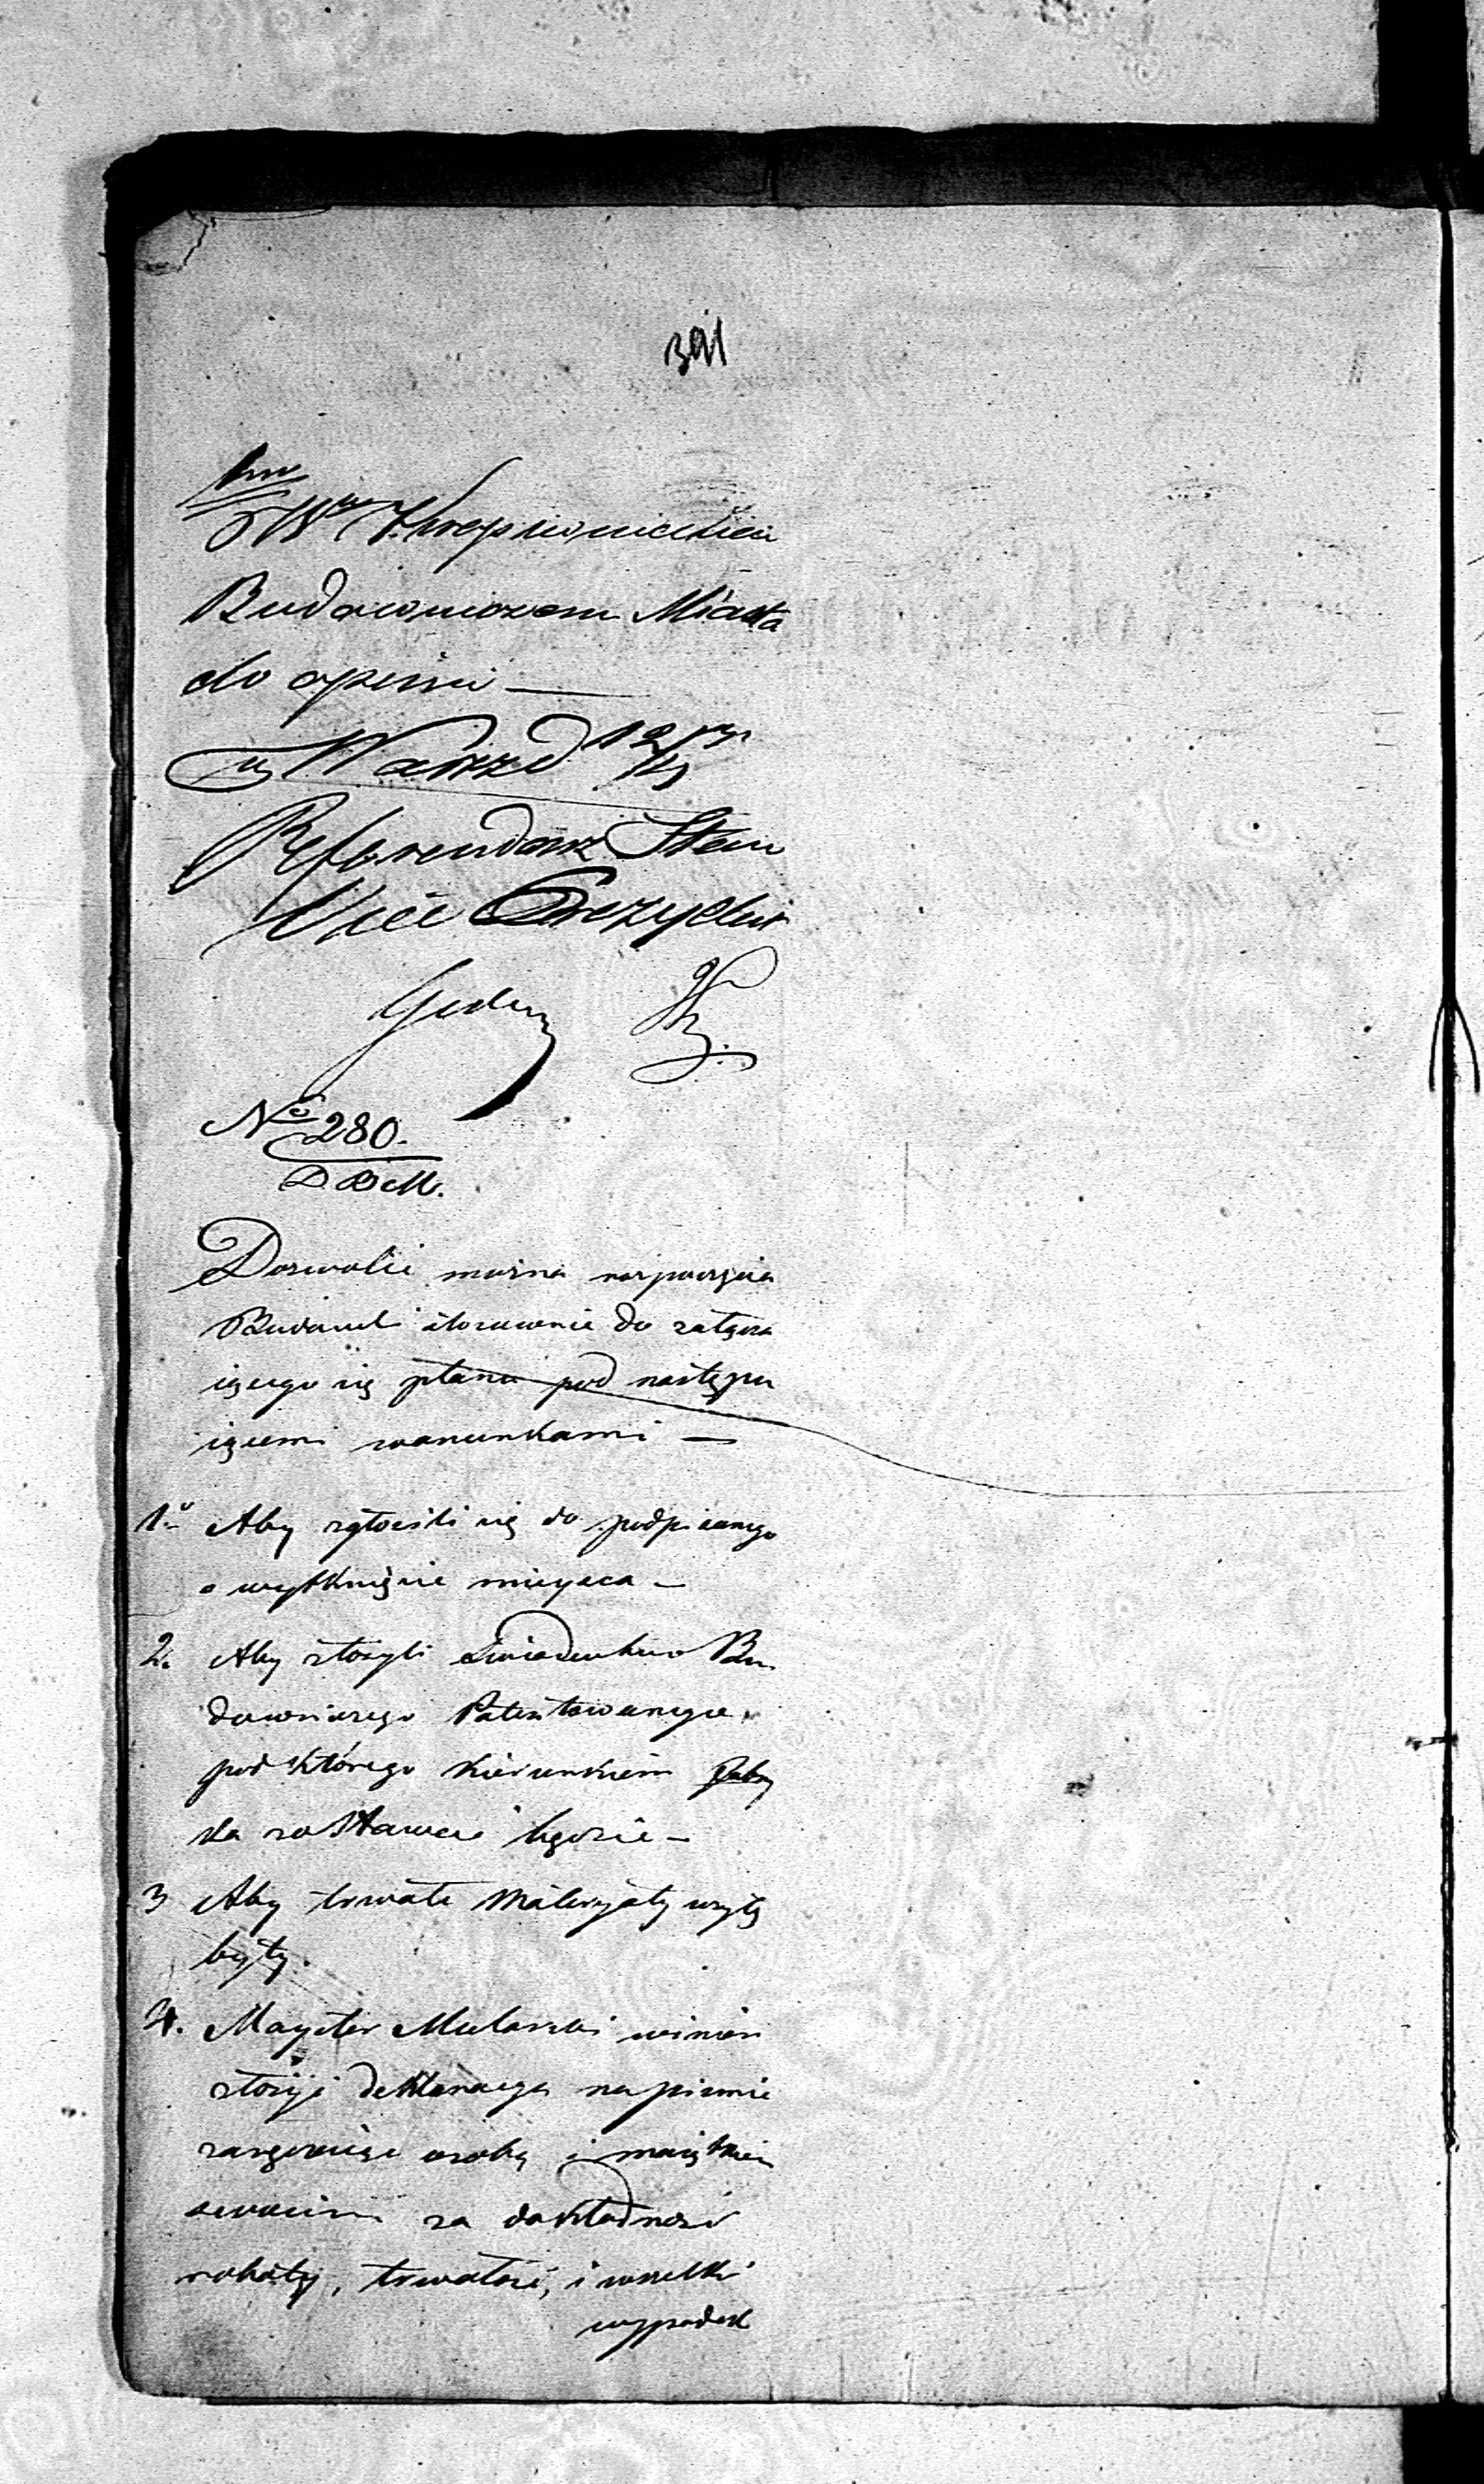 391
Budowniczem Miasta
do opinii —
w Warsz d 12/
Referendarz Stanu
Vice Prezydent
No 280.
D B M.
Dozwolić można rozpoczęcia
Budowli stosownie do załącza
iącego się planu pod następu
iącemi warunkami —
1o Aby zgłosili się do podpisanego
o wytknięcie mieysca —
2. Aby złożyli świadectwo Bu
downiczego Patentowanego
pod którego kierunkiem Faby
ka zostawać będzie —
3 Aby trwałe Materyały użyte
były.
4. Mayster Mularski winien
złożyć deklaracyą na piśmie
zaręczaiąc osobą i maiątkiem
swoim za dokładność
roboty, trwałość, i wszelki
wypadek